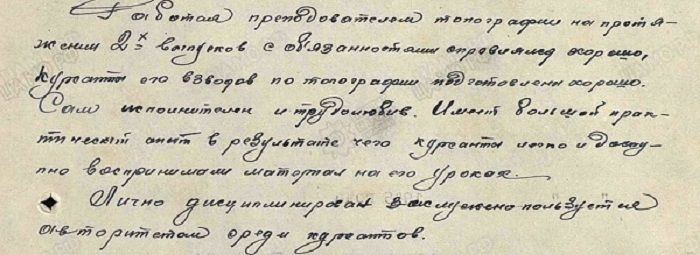 Работая преподователем топографии на протя-
жении 2х выпусков с обязанностями справлялся хорошо,
Курсанты его взводов по топографии подготовлены хорошо.
Сам исполнителен и трудолюбив. Имеет большой прак-
тический опыт в результате чего курсанты легко и досту-
пно воспринимали материал на его уроках.
Лично дисциплинирован заслуженно пользуется
авторитетом среди курсантов.